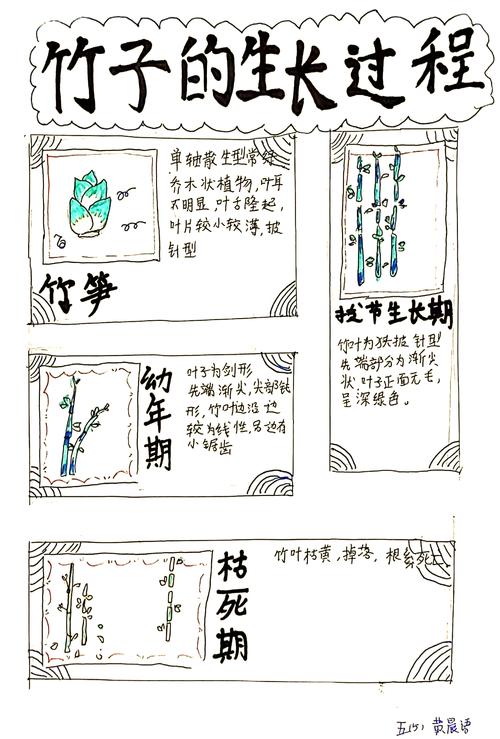 竹子的生长过程
单轴散生型常绿
乔木状植物,叶耳
不明显,叶舌隆起,
叶片较小较薄,披
针型
竹笋
拔节生长期
竹叶为狭披针型
先端部分为渐尖
状,叶子正面无毛,
呈深绿色。
幼年期
叶子为剑形
先端渐尖,尖部钻
形,竹叶边沿一边
较为线性,另边有
小锯齿
枯死期
竹叶枯黄,掉落,根系死亡
五(5)黄晨语